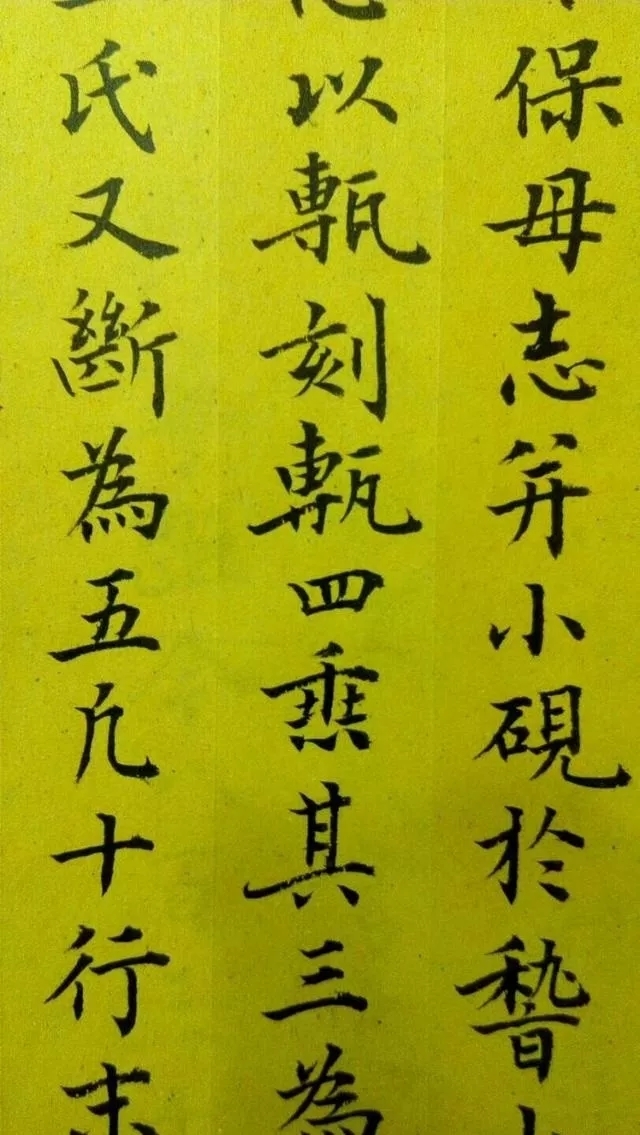 保母志并小硯於稽
以甎刻甎四垂其三為
氏又斷為五凡十行末